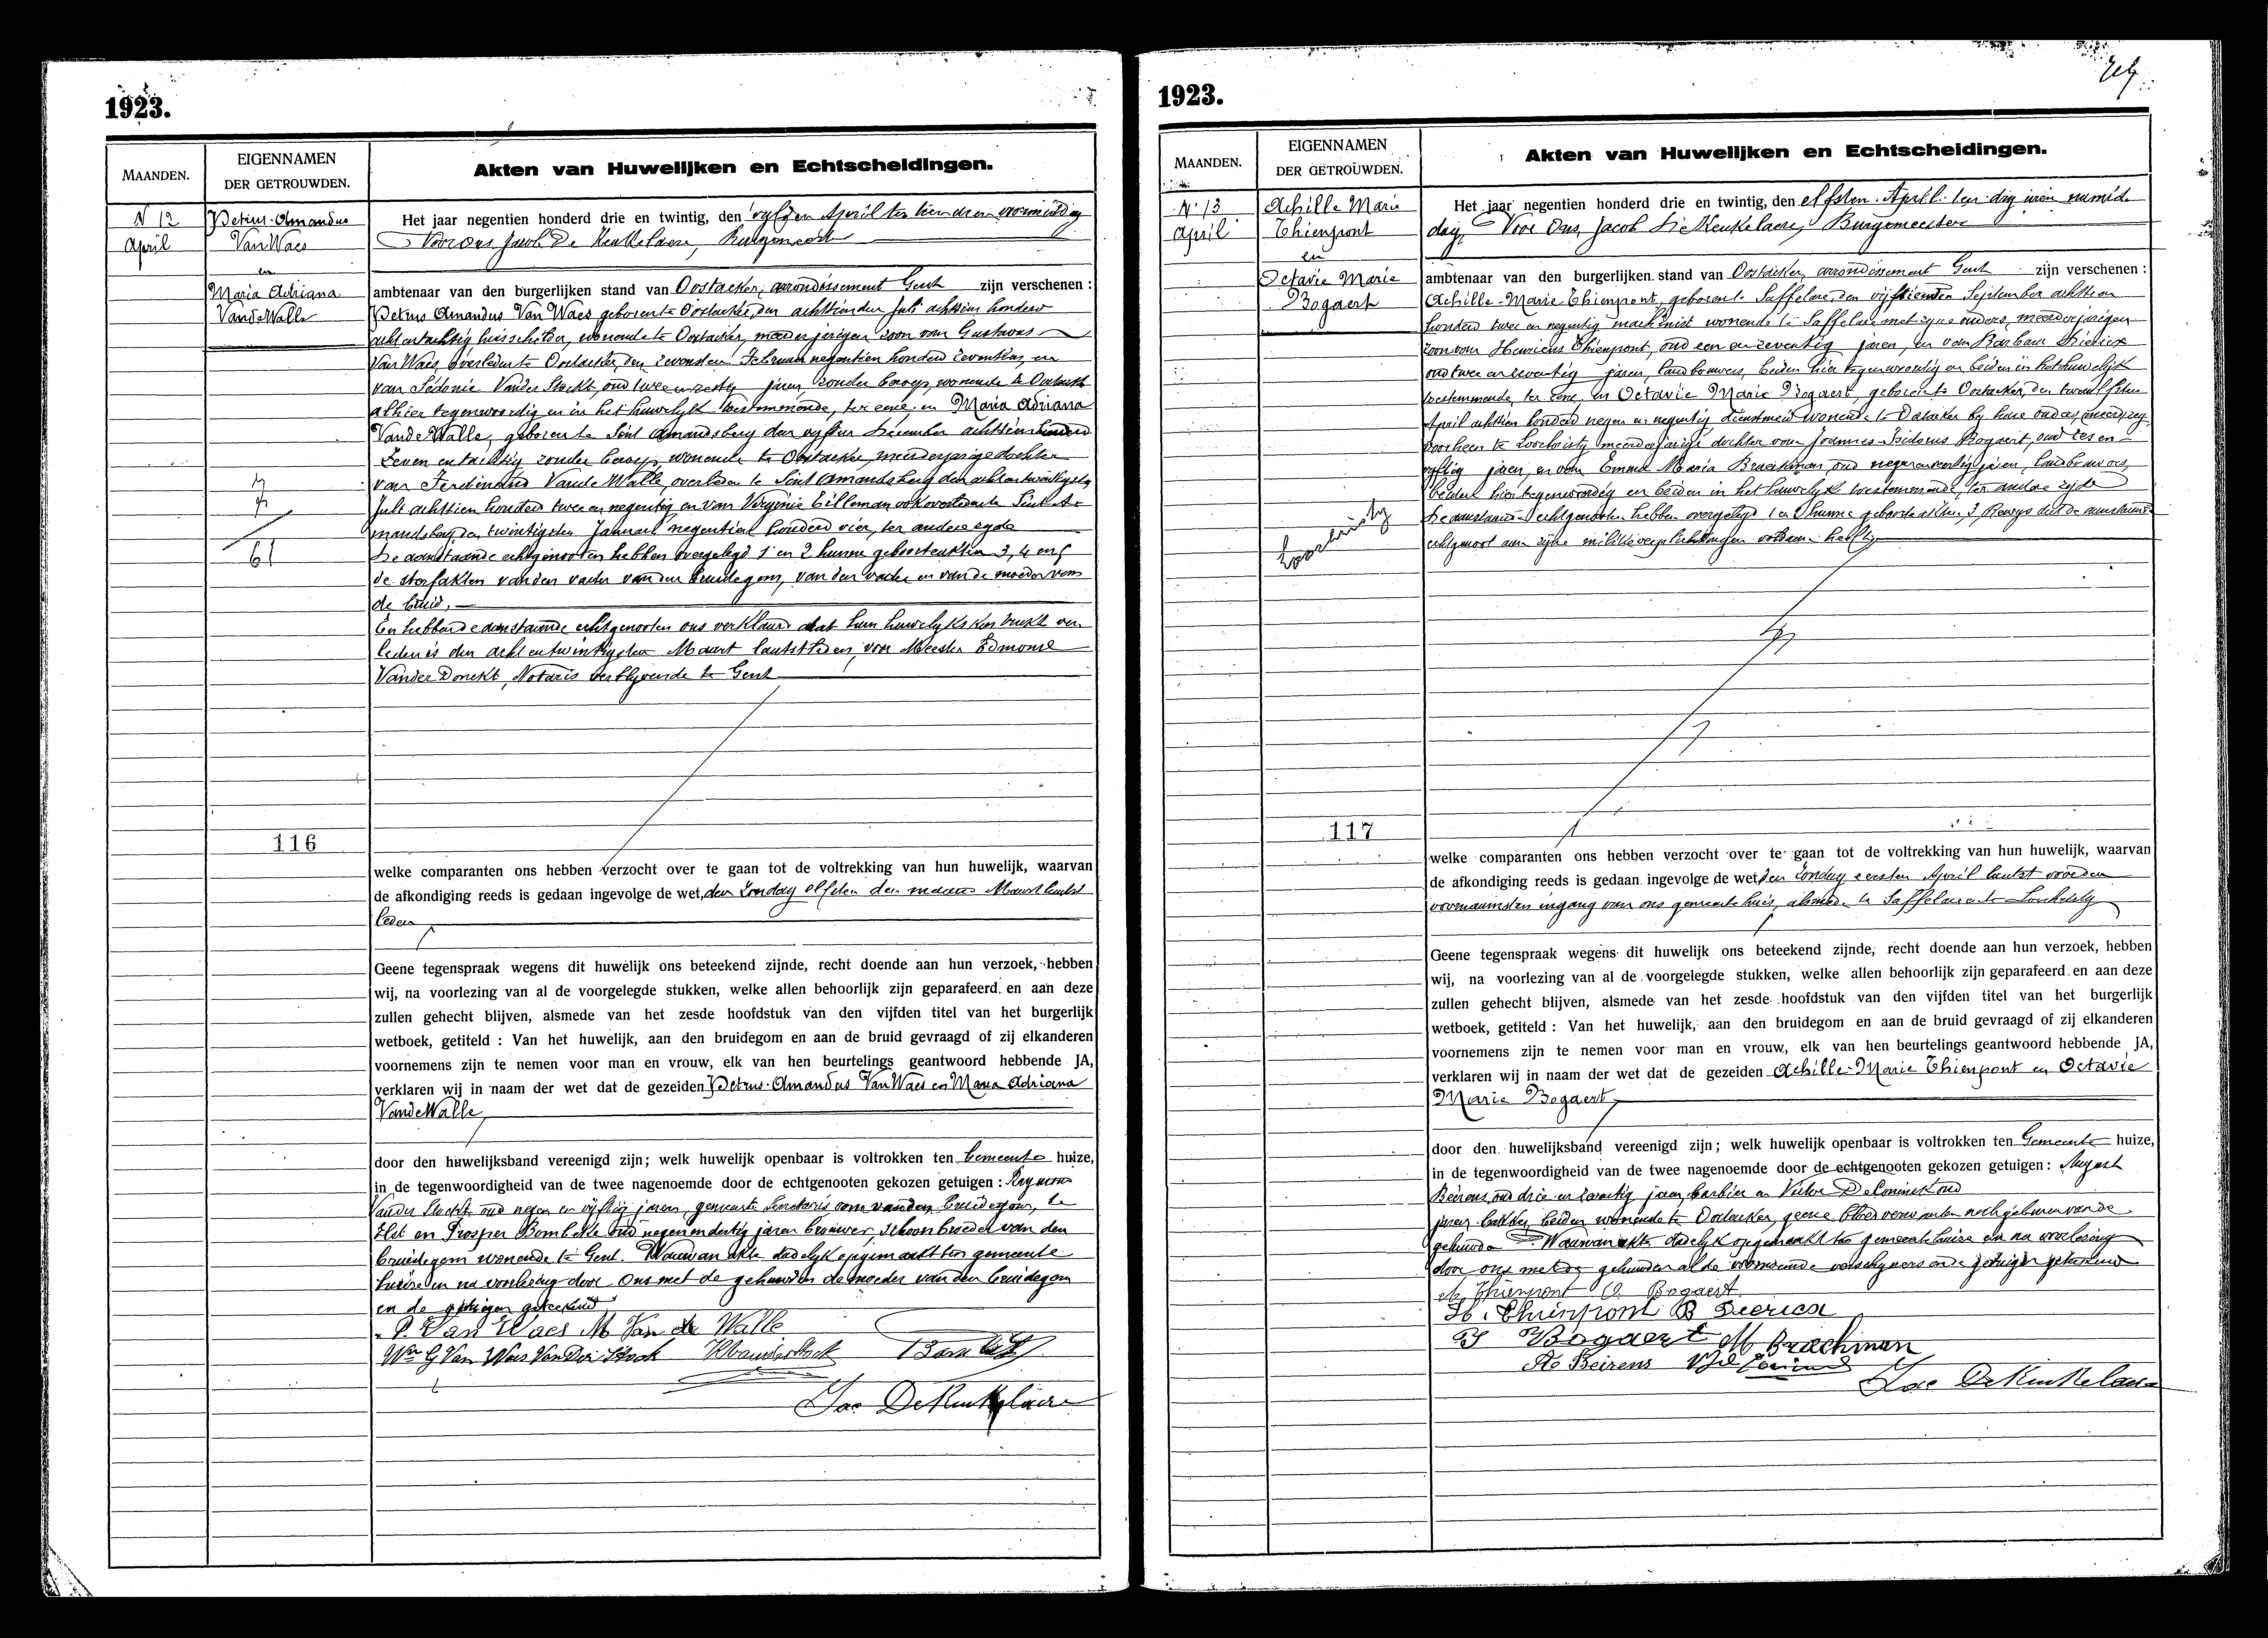 1923.
MAANDEN.
EIGENNAMEN
DER GETROUWDEN.
Akten van Huwelijken en Echtscheidingen.
N 12
April
Petrus-Amandus
Van Waes
en
Maria Adriana
VandeWalle
Het jaar negentien honderd drie en twintig, den vijfden April ten tien uren voormiddag
Voor ons Jacob De Keukelaere, Burgemeester
ambtenaar van den burgerlijken stand van Oostacker, arrondissement Gent zijn verschenen :
Petrus Amandus Van Waes geboren te Oostacker, den achttienden Juli achttien honderd
acht en tachtig huisschilder, wonende te Oostacker, meerderjarigen zoon van Gustavus
Van Waes, overleden te Oostacker, den Februari negentien honderd en
van Sidonie Vander Stockt, oud twee en zestig jaren, zonder beroep, wonende te Oostacker
alhier tegenwoordig en in het huwelijk toestemmende, ter eene; en Maria Adriana
VandeWalle, geboren te Sint Amandsberg den vijfden December achttien honderd
zeven en tachtig zonder beroep, wonende te Oostacker, meerderjarige dochter
van Ferdinand Vande Walle, overleden te Sint Amandsberg den acht en twintigsten
Juli achttien honderd twee en negentig en van Virginie Tilleman ook overleden te Sint A-
mandsberg den twintigsten Januari negentien honderd vier, ter andere zyde
De aanstaande echtgenooten hebben overgelegd 1 en 2 hunne geboorteakten 3, 4 en 5
de sterfakten van den vader van den bruidegom, van den vader en van de moeder van
de bruid,
En hebben de aanstaande echtgenooten ons verklaard dat hun huwelykskontrakt ver-
leden is den acht en twintigsten Maart laatstleden, voor Meester Edmond
Vander Donckt, Notaris verblijvende te Gent
116
welke comparanten ons hebben verzocht over te gaan tot de voltrekking van hun huwelijk, waarvan
de afkondiging reeds is gedaan ingevolge de wet, den Zondag elfden der maand Maart laatst
leden
Geene tegenspraak wegens dit huwelijk ons beteekend zijnde, recht doende aan hun verzoek, hebben
wij, na voorlezing van al de voorgelegde stukken, welke allen behoorlijk zijn geparafeerd en aan deze
zullen gehecht blijven, alsmede van het zesde hoofdstuk van den vijfden titel van het burgerlijk
wetboek, getiteld : Van het huwelijk, aan den bruidegom en aan de bruid gevraagd of zij elkanderen
voornemens zijn te nemen voor man en vrouw, elk van hen beurtelings geantwoord hebbende JA,
verklaren wij in naam der wet dat de gezeiden Petrus-Amandus Van Waes en Maria Adriana
VandeWalle,
door den huwelijksband vereenigd zijn; welk huwelijk openbaar is voltrokken ten Gemeente huize,
in de tegenwoordigheid van de twee nagenoemde door de echtgenooten gekozen getuigen : Raymond
Vander Stockt oud negen en vijftig jaren, gemeente Secretaris oom van den bruidegom, te
Elst en Prosper Bombeke oud negen en dertig jaren brouwer, schoonbroeder van den
bruidegom wonende te Gent. Waarvan akte dadelyk opgemaakt ten gemeente
huize en na voorlezing door Ons met de gehuwden de moeder van den bruidegom
en de getuigen geteekend
P. Van Waes M Van de Walle
We G Van Waes Van Der Stock
Jac DeKeukelaere
1923.
MAANDEN.
EIGENNAMEN
DER GETROUWDEN.
Akten van Huwelijken en Echtscheidingen.
N. 13
April
Achille Marie
Thienpont
en
Octavie Marie
Bogaert
Loochristy
Het jaar negentien honderd drie en twintig, den elfsten April ten dry uren namid-
dag, Voor Ons, Jacob De Keukelaere, Burgemeester
ambtenaar van den burgerlijken stand van Oostacker, arrondissement Gent zijn verschenen :
Achille-Marie Thienpont, geboren te Saffelare, den vijftienden September achttien
honderd twee en negentig machinist wonende te Saffelare met zyne ouders, meerderjarigen
zoon van Henricus Thienpont, oud een en zeventig jaren, en van Barbara Dierick
oud twee en zeventig jaren, landbouwers, beiden hier tegenwoordig en beiden in het huwelijk
toestemmende, ter eene, en Octavie Marie Bogaert, geboren te Oostacker, den twaalfsten
April achttien honderd negen en negentig, dienstmeid wonende te Oostacker by hare ouders,
voorheen te Loochristy, meerderjarige dochter van Joannes-Isidorus Bogaert, oud zes en
vijftig jaren, en van Emma Maria Braeckman, oud negen en veertig jaren, landbouwers,
beiden hier tegenwoordig en beiden in het huwelyk toestemmende, ter andere zyde
De aanstaande echtgenooten hebben overgelegd 1 en 2 hunne geboorteakten, 3 Bewys dat de aanstaande
echtgenoot aan zijne militieverplichtingen voldaan heeft,
117
welke comparanten ons hebben verzocht over te gaan tot de voltrekking van hun huwelijk, waarvan
de afkondiging reeds is gedaan ingevolge de wet, den Zondag eersten April laatst voor den
voornaamsten ingang van ons gemeentehuis, alsmede te Saffelare te Loochristy
Geene tegenspraak wegens dit huwelijk ons beteekend zijnde, recht doende aan hun verzoek, hebben
wij, na voorlezing van al de voorgelegde stukken, welke allen behoorlijk zijn geparafeerd en aan deze
zullen gehecht blijven, alsmede van het zesde hoofdstuk van den vijfden titel van het burgerlijk
wetboek, getiteld : Van het huwelijk, aan den bruidegom en aan de bruid gevraagd of zij elkanderen
voornemens zijn te nemen voor man en vrouw, elk van hen beurtelings geantwoord hebbende JA,
verklaren wij in naam der wet dat de gezeiden Achille-Marie Thienpont en Octavie
Marie Bogaert,
door den huwelijksband vereenigd zijn; welk huwelijk openbaar is voltrokken ten Gemeente huize,
in de tegenwoordigheid van de twee nagenoemde door de echtgenooten gekozen getuigen : August
Beirens, oud drie en jaren, barbier en Victor De Coninck oud
jaren bakker, beiden wonende te Oostacker, geene bloedverwanten noch geburen van de
gehuwden Waarvan akte dadelyk opgemaakt ten gemeentehuize en na voorlezing
door ons met de gehuwden al de voornoemde verschijners en de getuigen geteekend
A. Thienpont O. Bogaert
H. Thienpont B Dierick
Bogaert M Brackman
Beirens
Jac DeKeukelaere